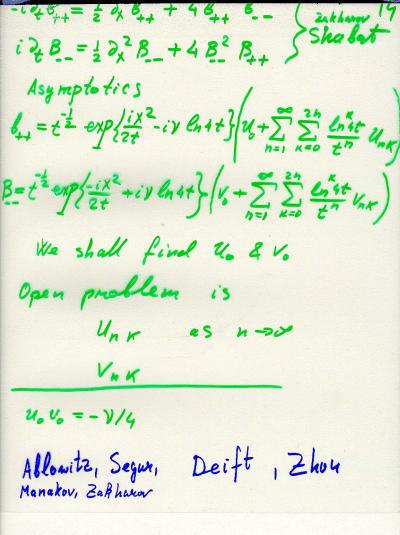 -i ∂_t b_{++} = ½ ∂_x² b_{++} + 4 b_{++}² B_{--}
Zakharov 14
Shabat
i ∂_t B_{--} = ½ ∂_x² B_{--} + 4 B_{--}² b_{++}
Asymptotics
b_{++} = t^{-½} exp{ix²/2t - iν ln4t} (u_0 + Σ_{n=1}^{∞} Σ_{k=0}^{2n} ln^k 4t / t^n u_{nk})
B_{--} = t^{-½} exp{-ix²/2t + iν ln4t} (v_0 + Σ_{n=1}^{∞} Σ_{k=0}^{2n} ln^k 4t / t^n v_{nk})
We shall find u_0 & v_0
Open problem is
u_{nk} as n→∞
v_{nk}
u_0 v_0 = -ν/4
Ablowitz, Segur, Deift, Zhou
Manakov, Zakharov